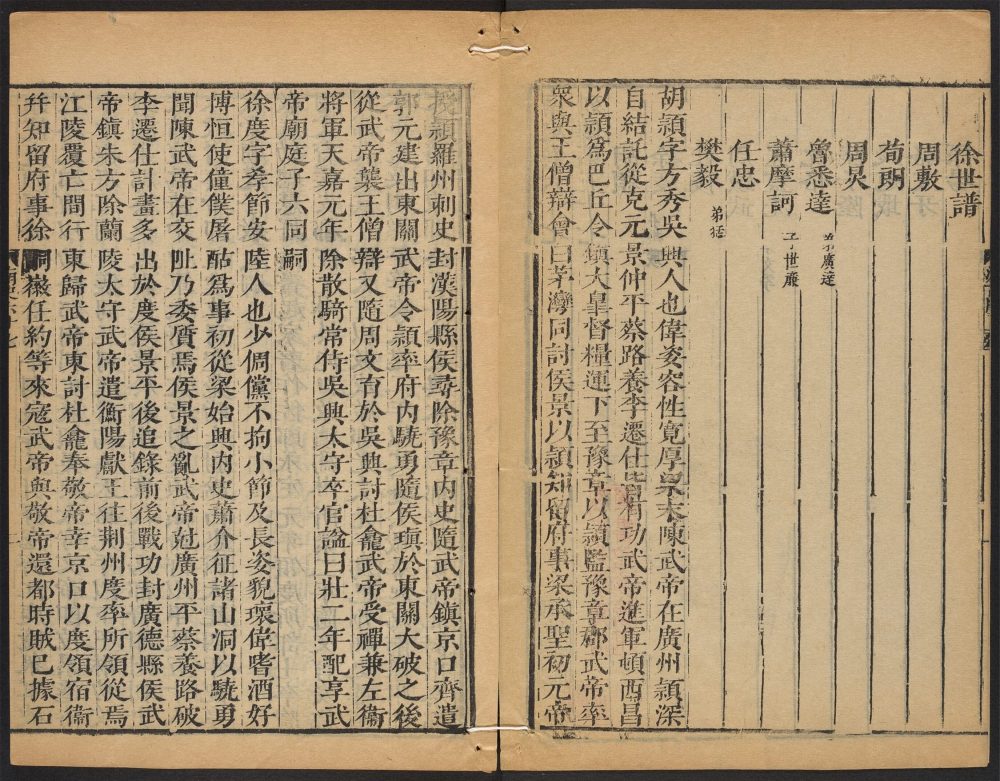 徐世譜
周敷
荀朗
周炅
魯悉達 弟廣達
蕭摩訶 子世廉
任忠
樊毅 弟猛
胡頴字方秀吳興人也偉姿容性寬厚梁末陳武帝在廣州頴深
自結託從克元景仲平蔡路養李遷仕皆有功武帝進軍頓西昌
以頴爲巴丘令鎮大臯督糧運下至豫章以頴監豫章郡武帝率
衆與王僧辯會曰茅灣同討侯景以頴知留府事梁承聖初元帝
授頴羅州刺史封漢陽縣侯尋除豫章内史隨武帝鎮京口齊遣
郭元建出東關武帝令頴率府内驍勇隨侯瑱於東關大破之後
從武帝襲王僧辯又隨周文育於吳興討杜龕武帝受禪兼左衞
將軍天嘉元年除散騎常侍吳興太守卒官諡曰壯二年配享武
帝廟庭子六同嗣
徐度字孝節安陸人也少倜儻不拘小節及長姿貌瓌偉嗜酒好
博恒使僮僕屠酤爲事初從梁始興内史蕭介征諸山洞以驍勇
聞陳武帝在交阯乃委質焉侯景之亂武帝尅廣州平蔡養路破
李遷仕計畫多出於度侯景平後追錄前後戰功封廣德縣侯武
帝鎮朱方除蘭陵太守武帝遣衡陽獻王往荆州度率所領從焉
江陵覆亡間行東歸武帝東討杜龕奉敬帝幸京口以度領宿衞
幷知留府事徐嗣徽任約等來寇武帝與敬帝還都時賊已據石